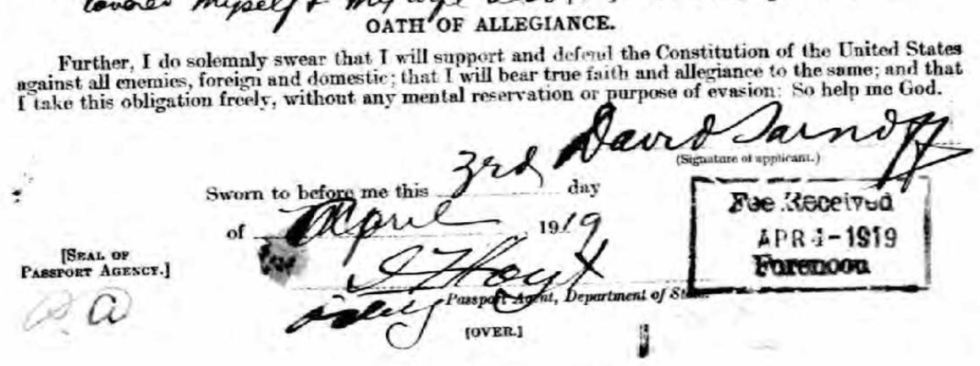 myself & my wife
OATH OF ALLEGIANCE.
Further, I do solemnly swear that I will support and defend the Constitution of the United States
against all enemies, foreign and domestic; that I will bear true faith and allegiance to the same; and that
I take this obligation freely, without any mental reservation or purpose of evasion: So help me God.
David Sarnoff
(Signature of applicant.)
Sworn to before me this 3rd day
of April 1919
[SEAL OF
PASSPORT AGENCY.]
Hoyt
Passport Agent, Department of State.
[OVER.]
Fee Received
APR 4-1919
Forenoon